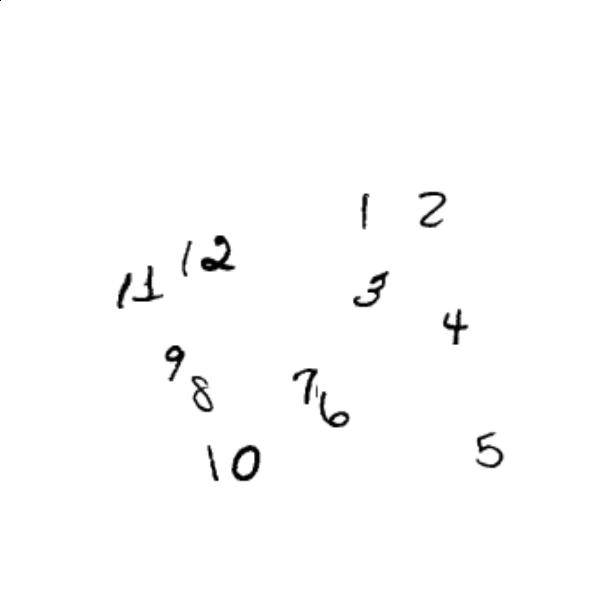 1 2
12
11
3
4
9
8
7
6
10
5